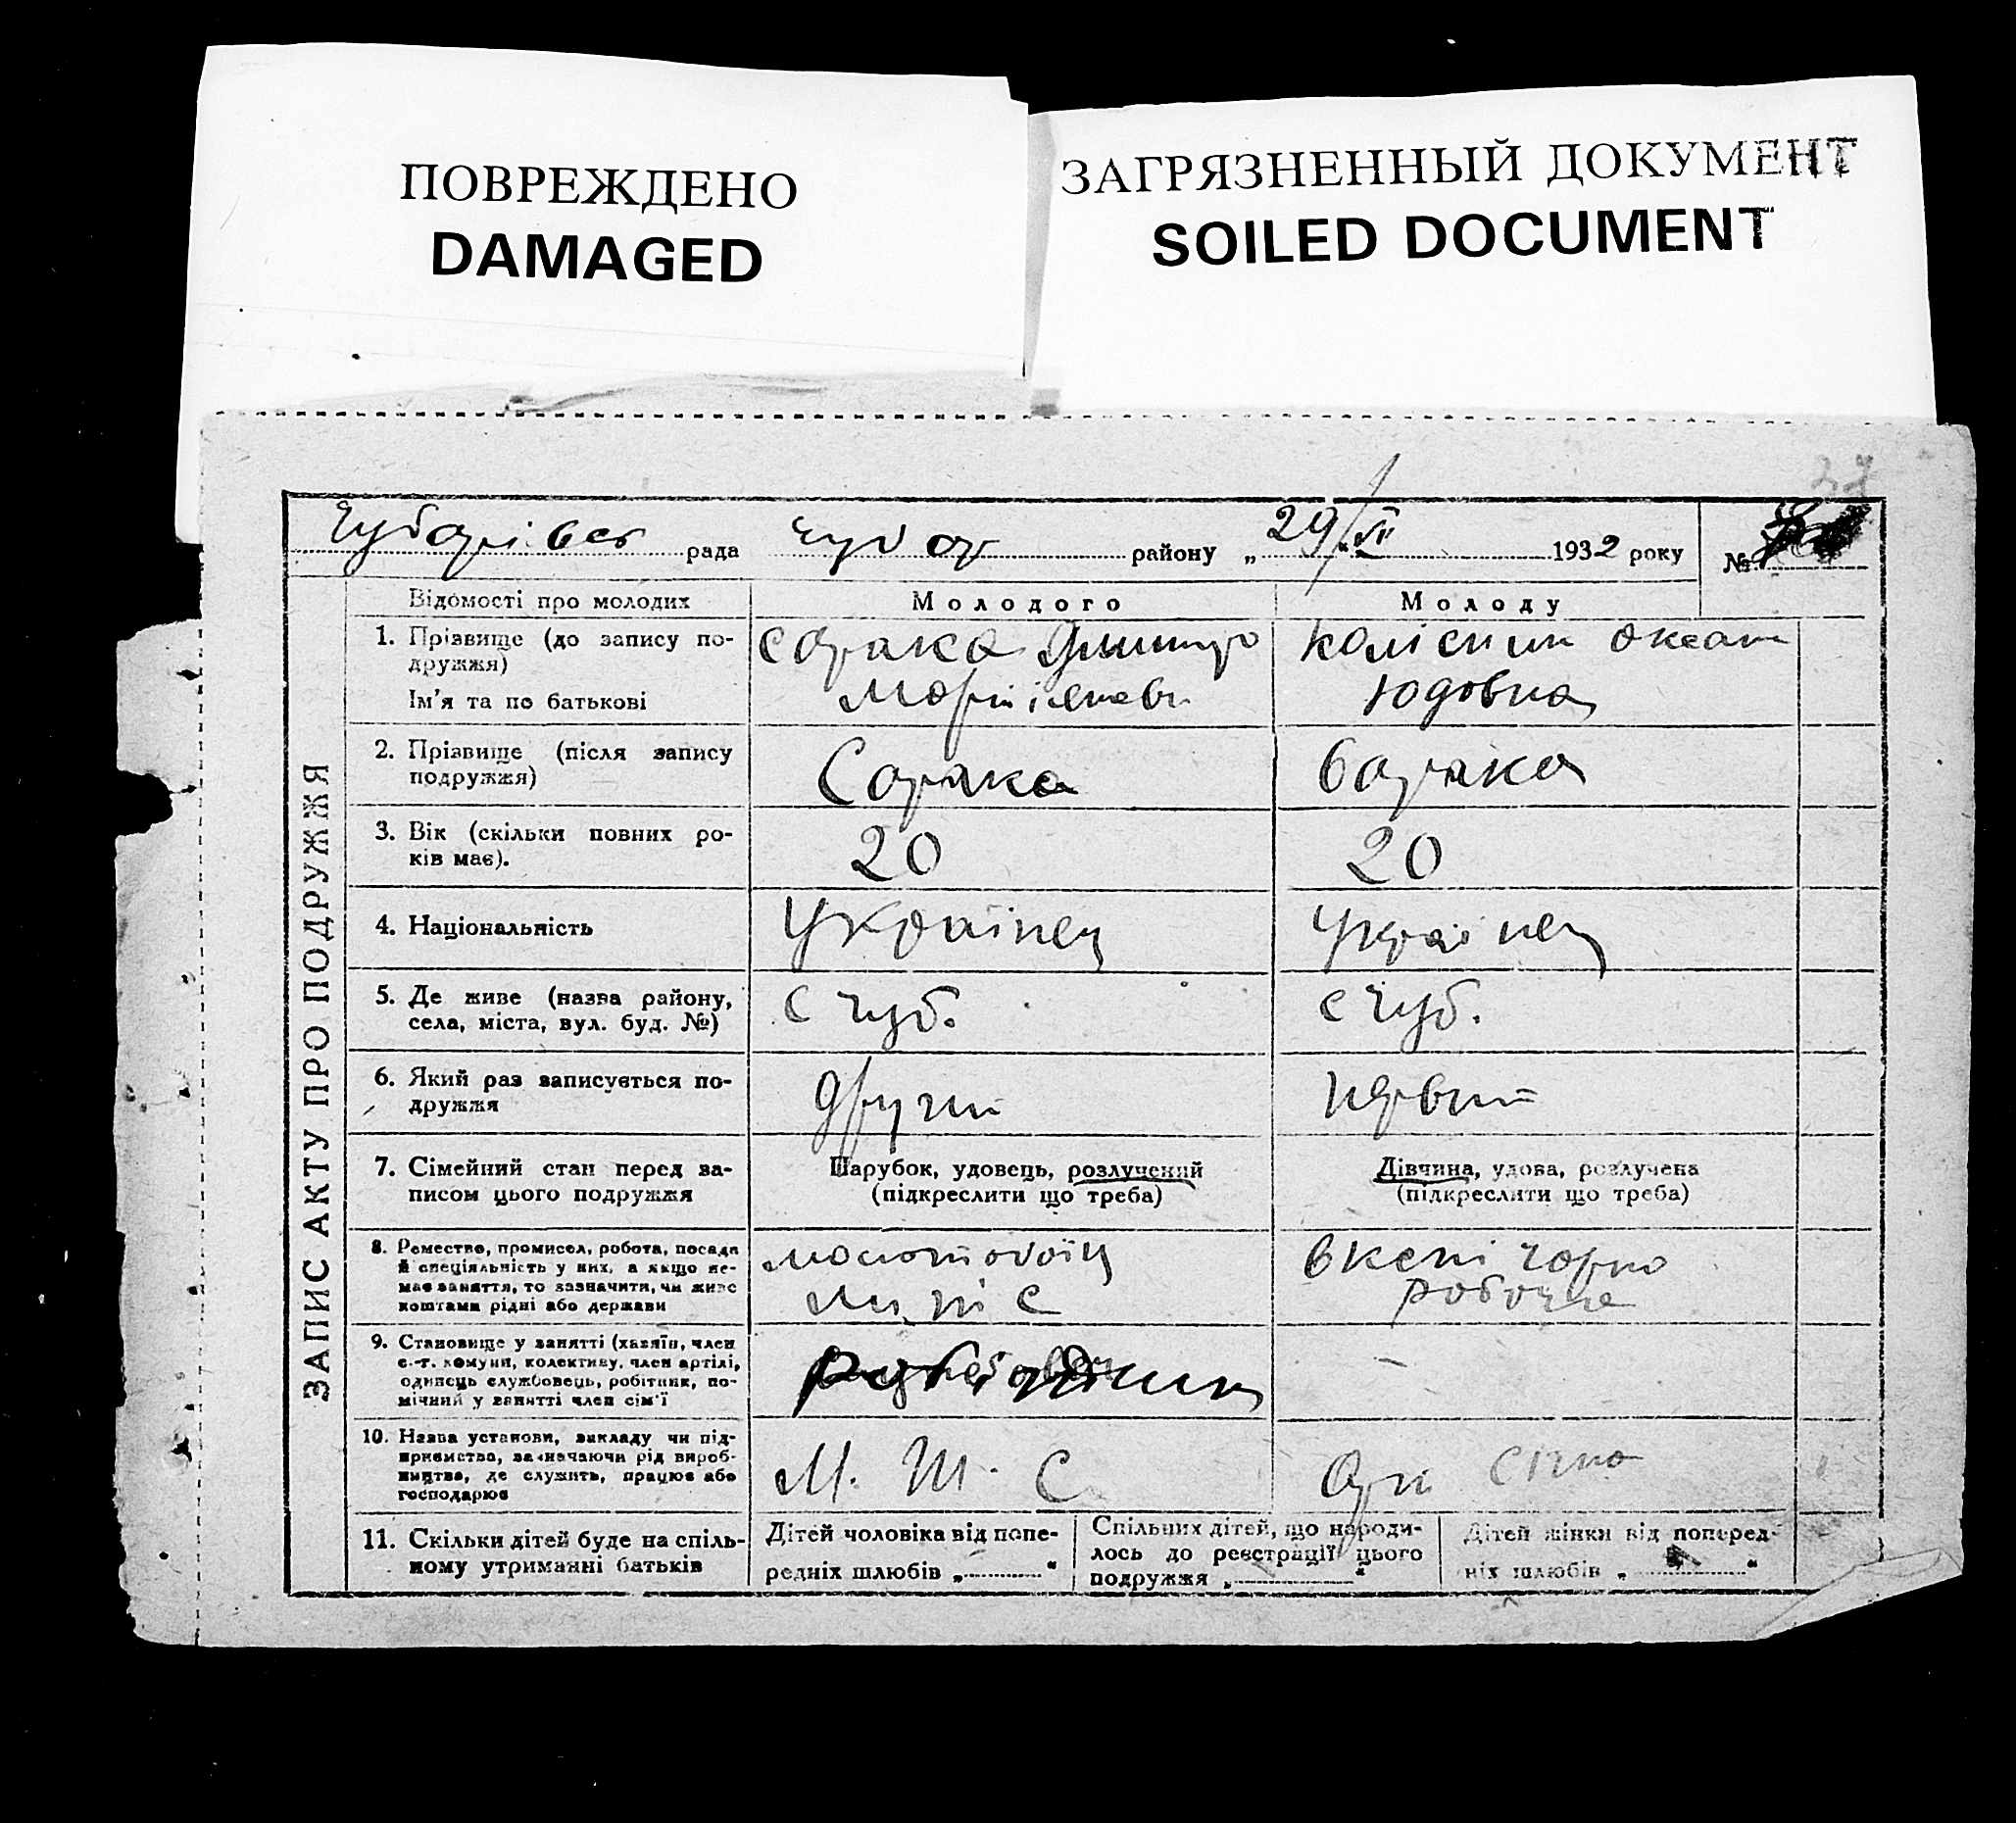 ПОВРЕЖДЕНО
DAMAGED
ЗАГРЯЗНЕННЫЙ ДОКУМЕНТ
SOILED DOCUMENT
37
рада Чубар району „29/VI 1932 року №
ЗАПИС АКТУ ПРО ПОДРУЖЖЯ
Відомості про молодих
Молодого
Молоду
1. Прізвище (до запису по-
дружжя)
Ім'я та по батькові
Сорака
Колісник
Юдовна
2. Прізвище (після запису
подружжя)
Сорака
Сорака
3. Вік (скільки повних ро-
ків має).
20
20
4. Національність
Українец
Українец
5. Де живе (назва району,
села, міста, вул. буд. №)
с Чуб.
с Чуб.
6. Який раз записується по-
дружжя
другий
первий
7. Сімейний стан перед за-
писом цього подружжя
Парубок, удовець, розлучений
(підкреслити що треба)
Дівчина, удова, розлучена
(підкреслити що треба)
8. Ремество, промисел, робота, посада
й спеціяльність у них, а якщо не-
має заняття, то зазначити, чи живе
коштами рідні або держави
молотобоїц
М Т С
чорно
робоча
9. Становище у занятті (хазяїн, член
с.-г. комуни, колективу, член артілі,
одинець службовець, робітник, по-
мічний у занятті член сім'ї
10. Назва установи, закладу чи під-
приємства, зазначаючи рід вироб-
ництва, де служить, працює або
господарює
М. Т. С.
11. Скільки дітей буде на спіль-
ному утриманні батьків
Дітей чоловіка від попе-
редніх шлюбів „ “
Спільних дітей, що народи-
лось до реєстрації цього
подружжя „ “
Дітей жінки від поперед-
ніх шлюбів „ “